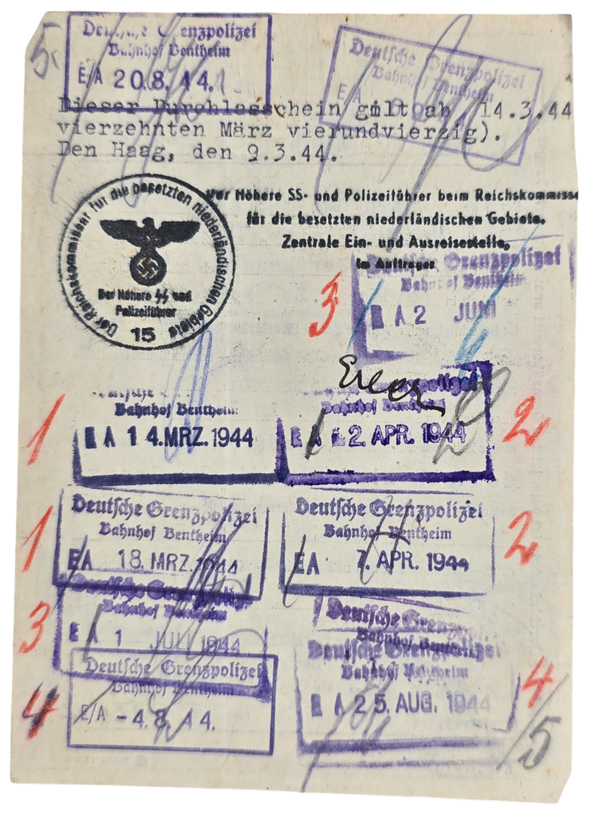 5
Deutsche Grenzpolizei
Bahnhof Bentheim
E/A 20.8.44.
Deutsche Grenzpolizei
Bahnhof Bentheim
Dieser Durchlasschein gilt ab 14.3.44
vierzehnten März vierundvierzig).
Den Haag, den 9.3.44.
Der Höhere SS- und Polizeiführer beim Reichskommissa
für die besetzten niederländischen Gebiete.
Zentrale Ein- und Ausreisestelle.
Im Auftrage
Der Reichskommissar für die besetzten niederländischen Gebiete
Der Höhere SS und
Polizeiführer
15
3
Deutsche Grenzpolizei
Bahnhof Bentheim
E A 2 JUNI
1
Bahnhof Bentheim
E A 1 4. MRZ. 1944
Grenzpolizei
Bahnhof Bentheim
E A 2. APR. 1944
2
1
Deutsche Grenzpolizei
Bahnhof Bentheim
EA 18. MRZ. 1944
Deutsche Grenzpolizei
Bahnhof Bentheim
EA 7. APR. 1944
2
3
Deutsche Grenzpolizei
Bahnhof Bentheim
E A 1 1944
4
Deutsche Grenzpolizei
Bahnhof Bentheim
E/A -4.8.44.
Deutsche Grenzpolizei
Bahnhof
Deutsche Grenzpolizei
Bahnhof Bentheim
E A 25. AUG. 1944
4
5